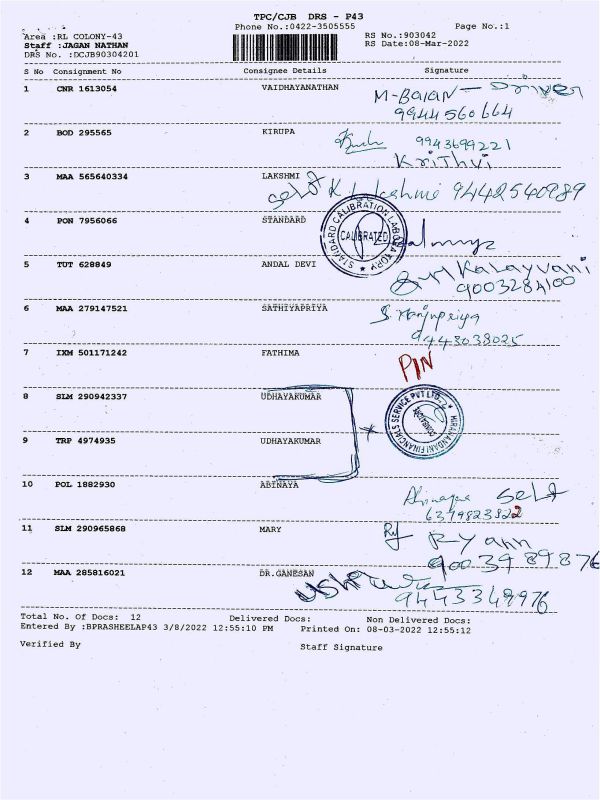 TPC/CJB DRS - P43
Phone No.:0422-3505555 Page No.:1
Area :RL COLONY-43 RS No.:903042
Staff :JAGAN NATHAN RS Date:08-Mar-2022
DRS No. :DCJB90304201
S No Consignment No Consignee Details Signature
1 CNR 1613054 VAIDHAYANATHAN M-Balan - Driver
9944560664
2 BOD 295565 KIRUPA 9943699221
Krithvi
3 MAA 565640334 LAKSHMI Self K. Lakshmi 9442540989
4 PON 7956066 STANDARD
STANDARD CALIBRATION LABORATORY
CALIBRATED
5 TUT 628849 ANDAL DEVI Kalayvani
9003284100
6 MAA 279147521 SATHIYAPRIYA S. Manjupriya
9443038025
7 IXM 501171242 FATHIMA PIN
8 SLM 290942337 UDHAYAKUMAR
HIRANANDANI FINANCIALS SERVICE PVT LTD
9 TRP 4974935 UDHAYAKUMAR
10 POL 1882930 ABINAYA Abinaya Self
6379823822
11 SLM 290965868 MARY Ryann
9003989876
12 MAA 285816021 DR.GANESAN Usha
9443348976
Total No. Of Docs: 12 Delivered Docs: Non Delivered Docs:
Entered By :BPRASHEELAP43 3/8/2022 12:55:10 PM Printed On: 08-03-2022 12:55:12
Verified By Staff Signature